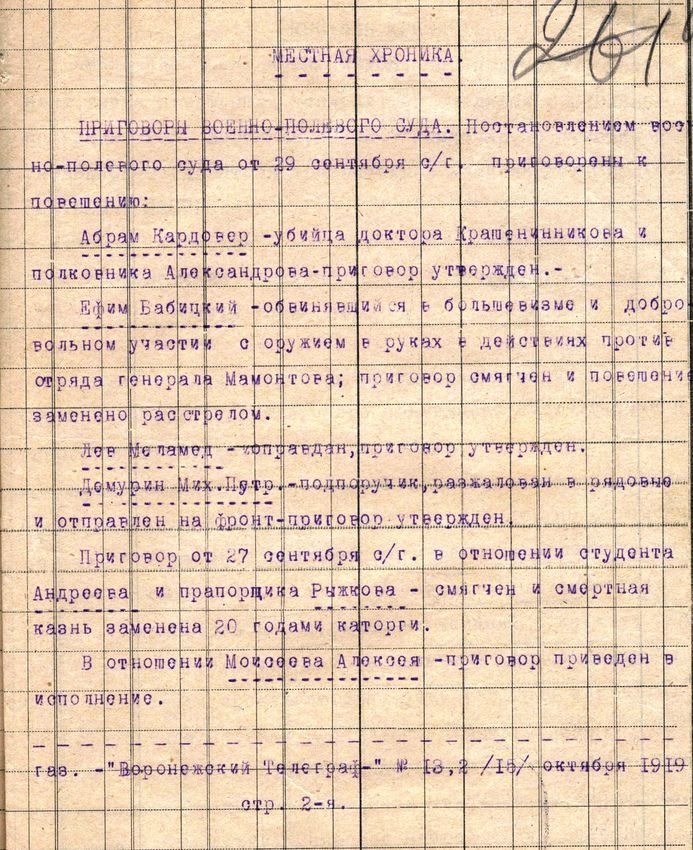 261
МЕСТНАЯ ХРОНИКА.
ПРИГОВОРЫ ВОЕННО-ПОЛЕВОГО СУДА. Постановлением вое
но-полевого суда от 29 сентября с/г. приговорены к
повешению:
Абрам Кардовер -убийца доктора Крашенинникова и
полковника Александрова-приговор утвержден.-
Ефим Бабицкий -обвинявшийся в большевизме и добро
вольном участии с оружием в руках в действиях против
отряда генерала Мамонтова; приговор смягчен и повешение
заменено расстрелом.
Лев Меламед -оправдан,приговор утвержден.
Демурин Мих.Петр.-подпоручик,разжалован в рядовые
и отправлен на фронт-приговор утвержден.
Приговор от 27 сентября с/г. в отношении студента
Андреева и прапорщика Рыжкова - смягчен и смертная
казнь заменена 20 годами каторги.
В отношении Моисеева Алексея -приговор приведен в
исполнение.
газ. -"Воронежский Телеграф-" № 13,2 /15/ октября 1919
стр. 2-я.